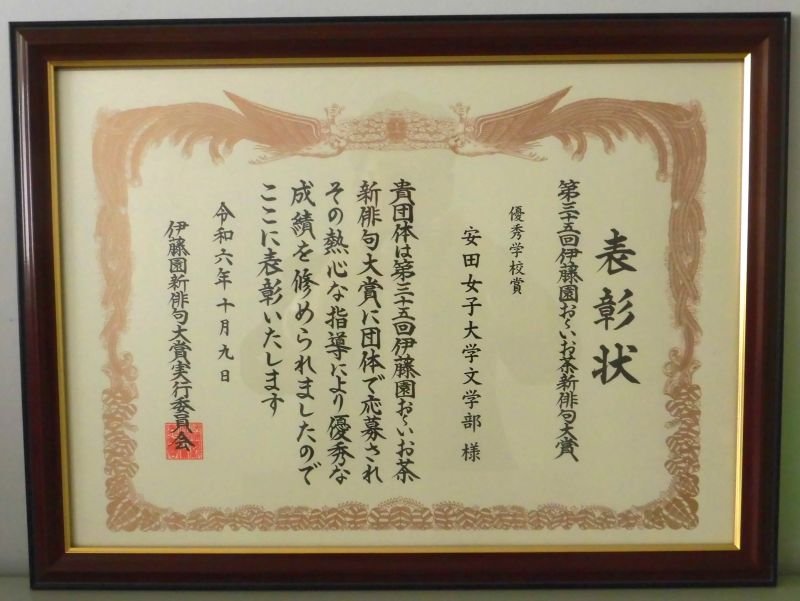 表彰状
第三十五回伊藤園お〜いお茶新俳句大賞
優秀学校賞
安田女子大学文学部 様
貴団体は第三十五回伊藤園お〜いお茶
新俳句大賞に団体で応募され
その熱心な指導により優秀な
成績を修められましたので
ここに表彰いたします
令和六年十月九日
伊藤園新俳句大賞実行委員会